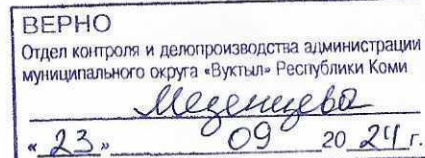 ВЕРНО
Отдел контроля и делопроизводства администрации
муниципального округа «Вуктыл» Республики Коми
Мезенцева
« 23 » 09 20 24 г.